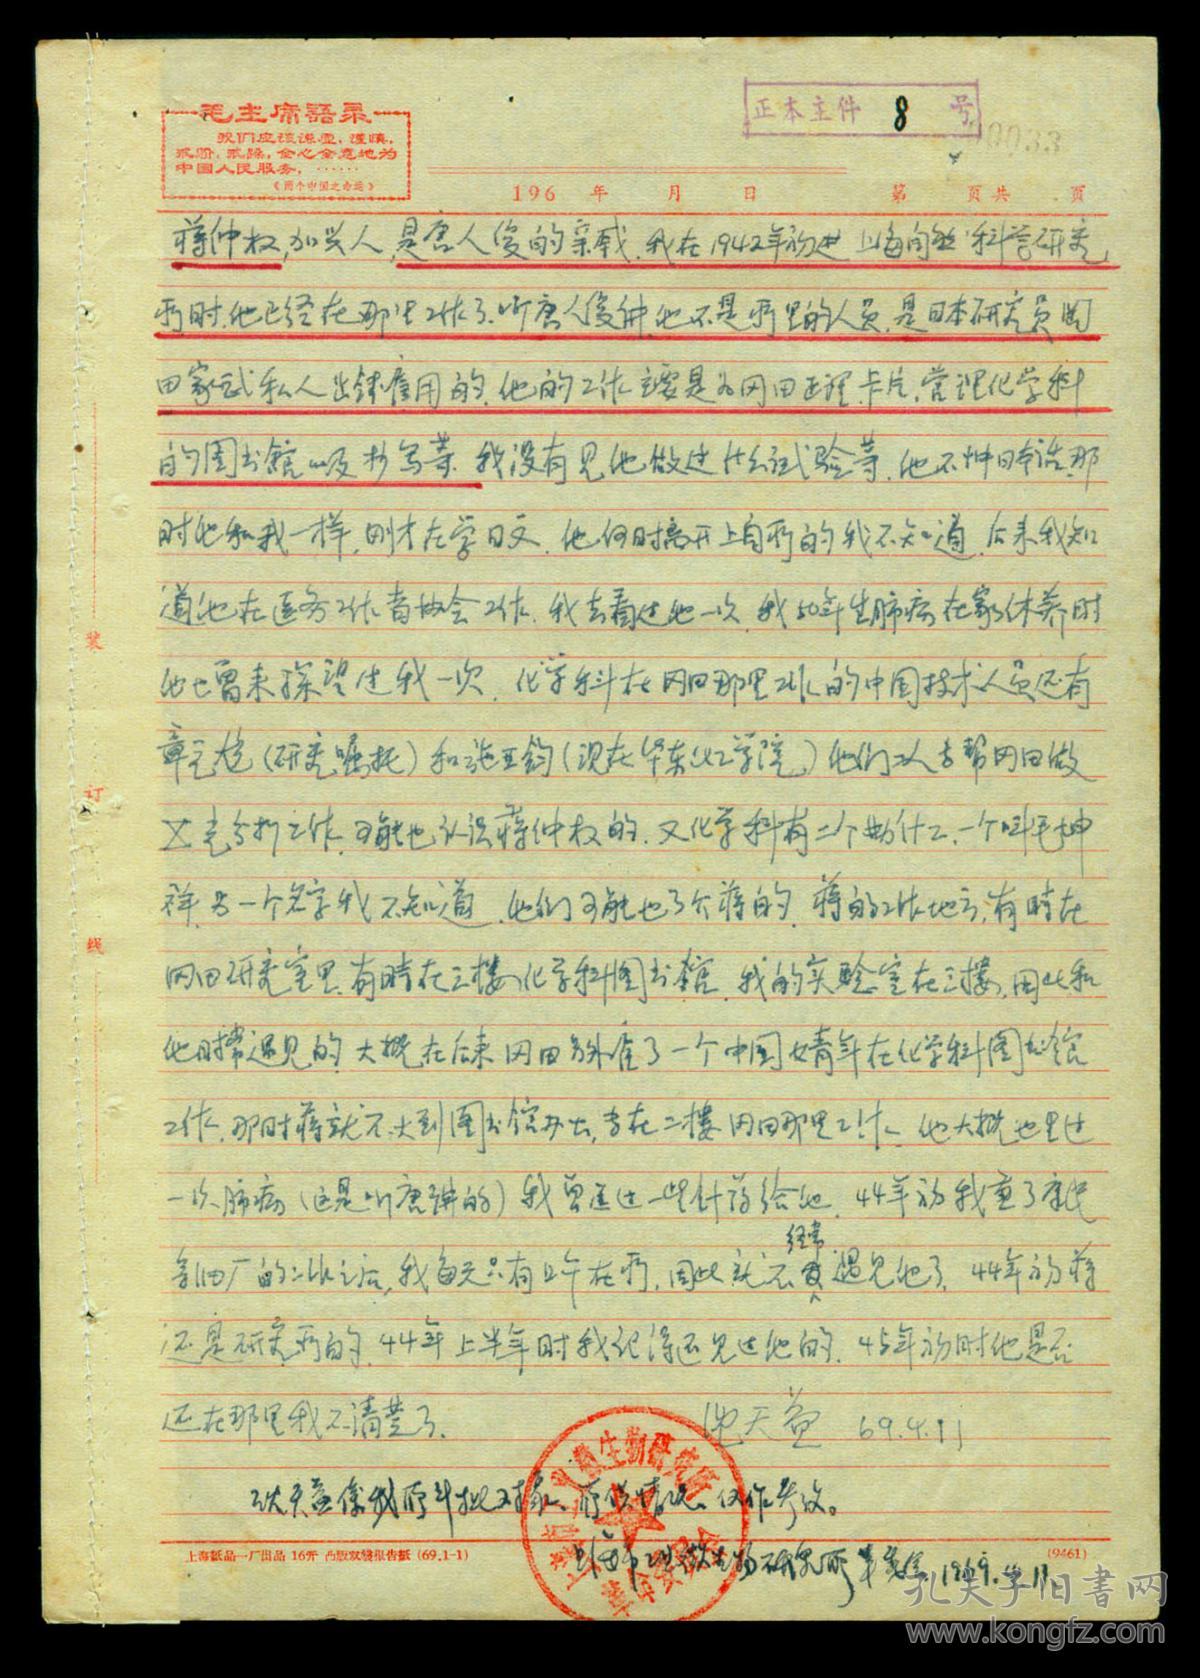 正本主件 8 号
00033
毛主席語录
我们应该谦虚，謹慎，
戒驕，戒躁，全心全意地为
中国人民服务，……
《两个中国之命运》
196 年 月 日 第 页共 页
蒋仲权，加兴人，是唐人俊的亲戚，我在1942年初进上海自然科学研究
所时，他已经在那里工作了，听唐人俊讲，他不是所里的人员，是日本研究员冈
田家武私人出钱雇用的，他的工作主要是为冈田整理卡片，管理化学科
的图书馆以及抄写等，我没有见他做过什么试验等，他不懂日本话，那
时他和我一样，刚才在学日文，他何时离开上自所的我不知道，后来我知
道他在医务工作者协会工作，我去看过他一次，我50年生肺病在家休养时
他也曾来探望过我一次，化学科在冈田那里工作的中国技术人员还有
章元 （研究嘱托）和施亚钧（现在华东化工学院）他们二人专帮冈田做
X光分析工作，可能也认识蒋仲权的，又化学科有二个 什么，一个叫毛坤
祥，另一个名字我不知道，他们可能也了介蒋的，蒋的工作地方，有時在
冈田研究室里，有時在三楼化学科图书馆，我的实驗室在三楼，因此和
他时常遇见的，大概在后来冈田另外雇了一个中国女青年在化学科图书馆
工作，那时蒋就不大到图书馆办去，专在二楼冈田那里工作，他大概也生过
一次肺病（这是听唐讲的）我曾送过一些针药给他，44年初我兼了
厂的工作之后，我每天只有上午在所，因此就不经常遇见他了，44年初蒋
还是研究所的，44年上半年时我记得还见过他的，45年初时他是否
还在那里我不清楚了，
天益 69.4.11
天益系我所斗批对象、所供情况、仅作参考。
上海市工业微生物研究所革委会 1969.4.11
上海紙品一厂出品 16开 凸版双綫报告紙（69.1-1） （9461）
装
订
线
孔夫子旧书网
www.kongfz.com